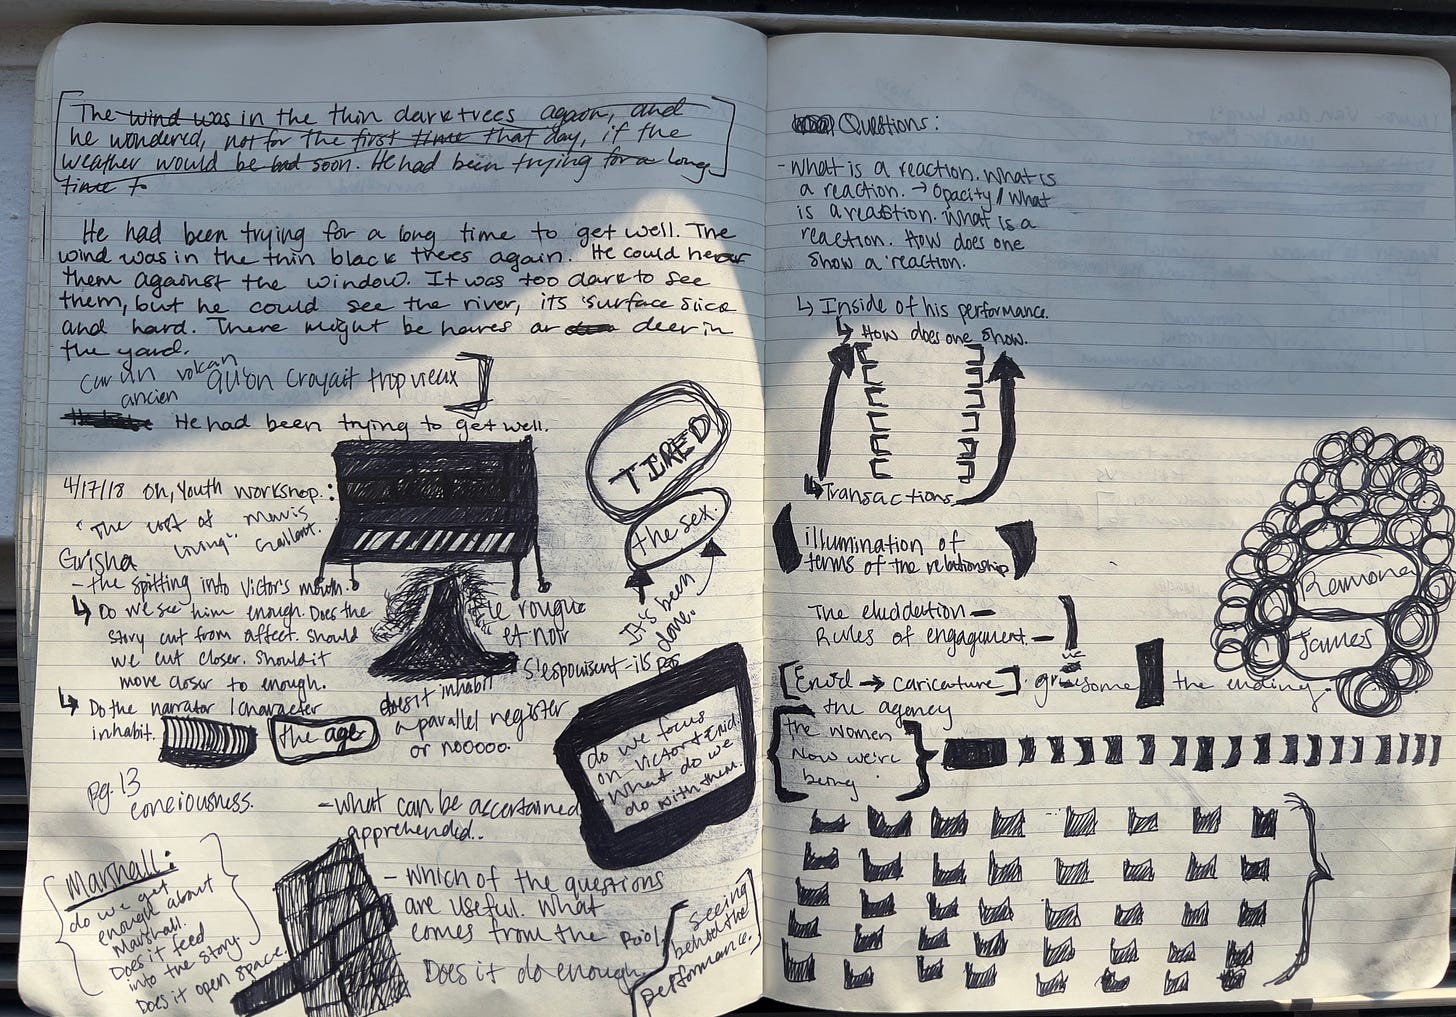 The wind was in the thin dark trees again, and
he wondered, not for the first time that day, if the
weather would be bad soon. He had been trying for a long
time to
He had been trying for a long time to get well. The
wind was in the thin black trees again. He could hear
them against the window. It was too dark to see
them, but he could see the river, its surface slick
and hard. There might be hares or deer in
the yard.
un volcan
ancien
qu'on croyait trop vieux
He had been trying to get well.
4/17/18 Oh, Youth workshop:
"The cost of living" Mavis Gallant.
Grisha
- the spitting into Victor's mouth.
↳ Do we see him enough. Does the
story cut from affect. Should
we cut closer. Should it
move closer to enough.
↳ Do the narrator / character
inhabit.
the age
does it inhabit
a parallel register
or nooooo.
le rouge
et noir
s'epousent-ils pas
TIRED
the sex.
It's been
done.
do we focus
on Victor + Enid.
What do we
do with them.
pg. 13
conciousness.
- what can be ascertained
apprehended..
- which of the questions
are useful. What
comes from the pool.
Does it do enough
seeing
behind the
performance.
Marshall:
do we get
enough about
Marshall.
Does it feed
into the story
Does it open space.
Questions:
- What is a reaction. What is
a reaction. → Opacity / What
is a reaction. What is a
reaction. How does one
show a reaction.
↳ Inside of his performance.
↳ How does one show.
↳ Transactions
illumination of
terms of the relationship
The eludidation —
Rules of engagement. —
[Enid → caricature] gruesome the ending.
the agency
the women
Now we're
being
Ramona
James